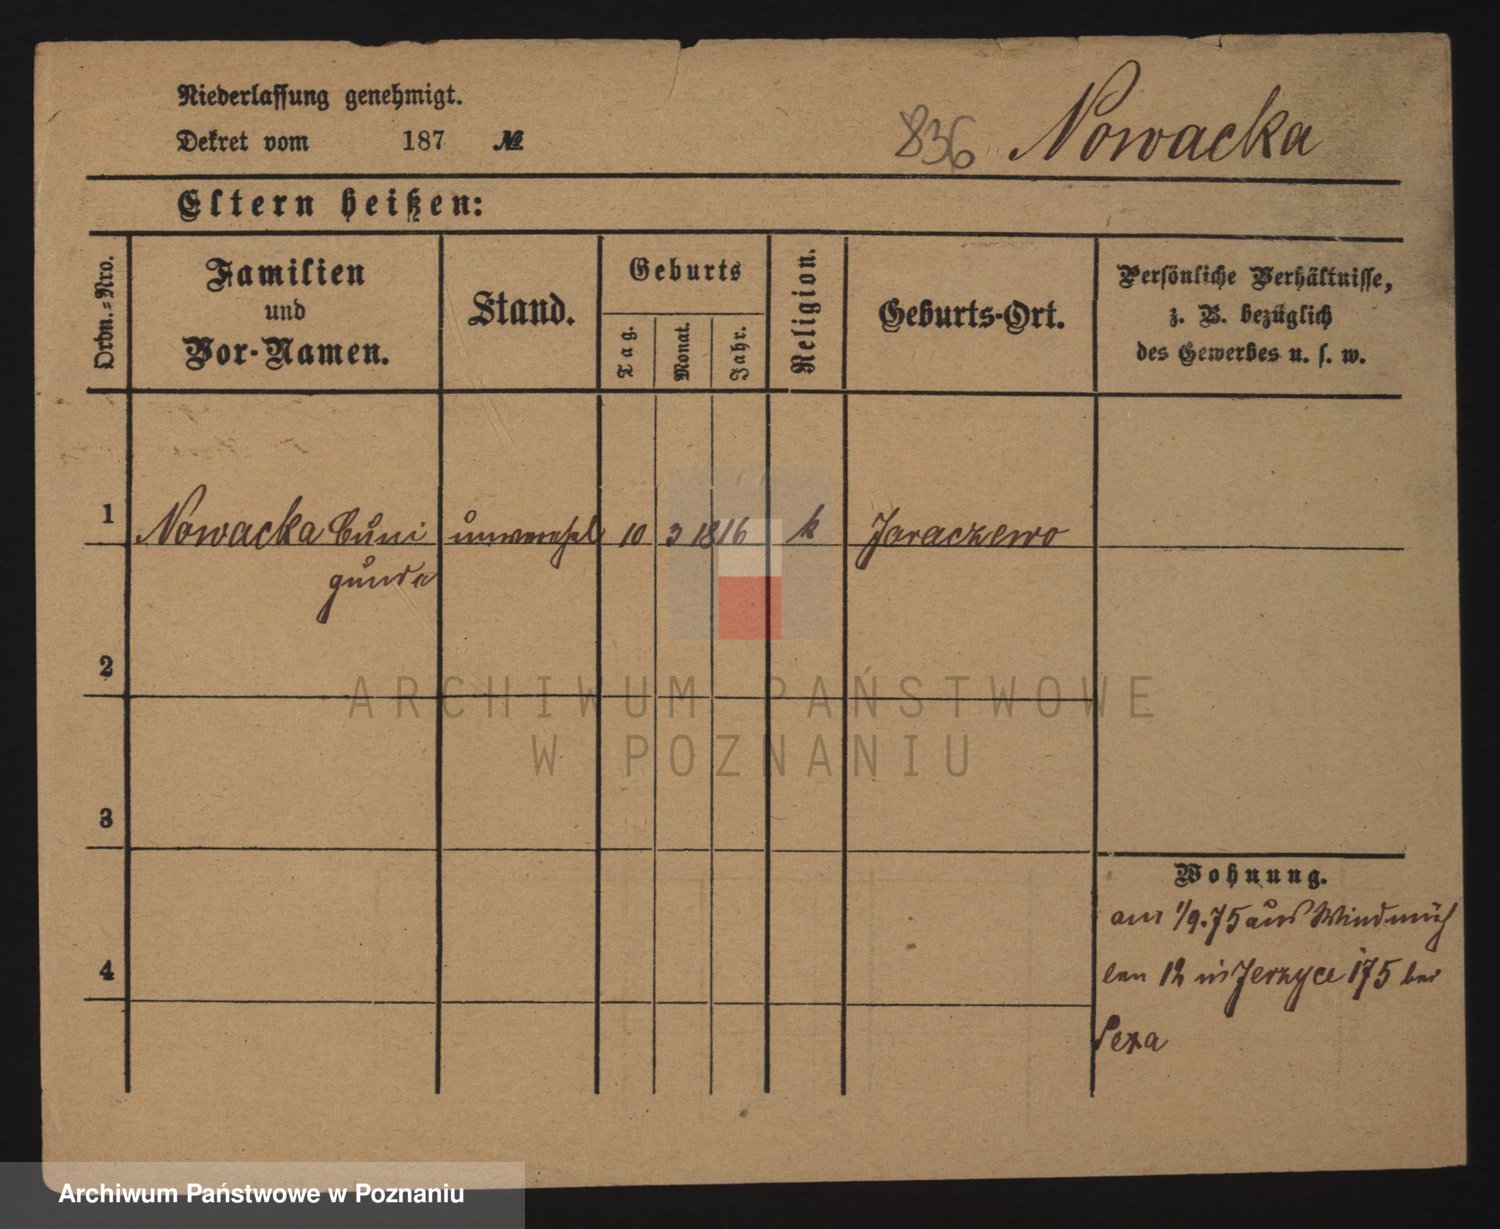 Niederlassung genehmigt.
Dekret vom 187 №
836 Nowacka
Eltern heißen:
Ordn.-Nro.
Familien
und
Vor-Namen.
Stand.
Geburts
Tag.
Monat.
Jahr.
Religion.
Geburts-Ort.
Persönliche Verhältnisse,
z. B. bezüglich
des Gewerbes u. s. w.
1 Nowacka Cuni unverehel 10 3 1816 k Jaraczewo
gunda
2
3
4
Wohnung.
am 1/9.75 aus Windmüh
len 12 in Jerzyce 175 bei
ARCHIWUM PAŃSTWOWE
W POZNANIU
Archiwum Państwowe w Poznaniu